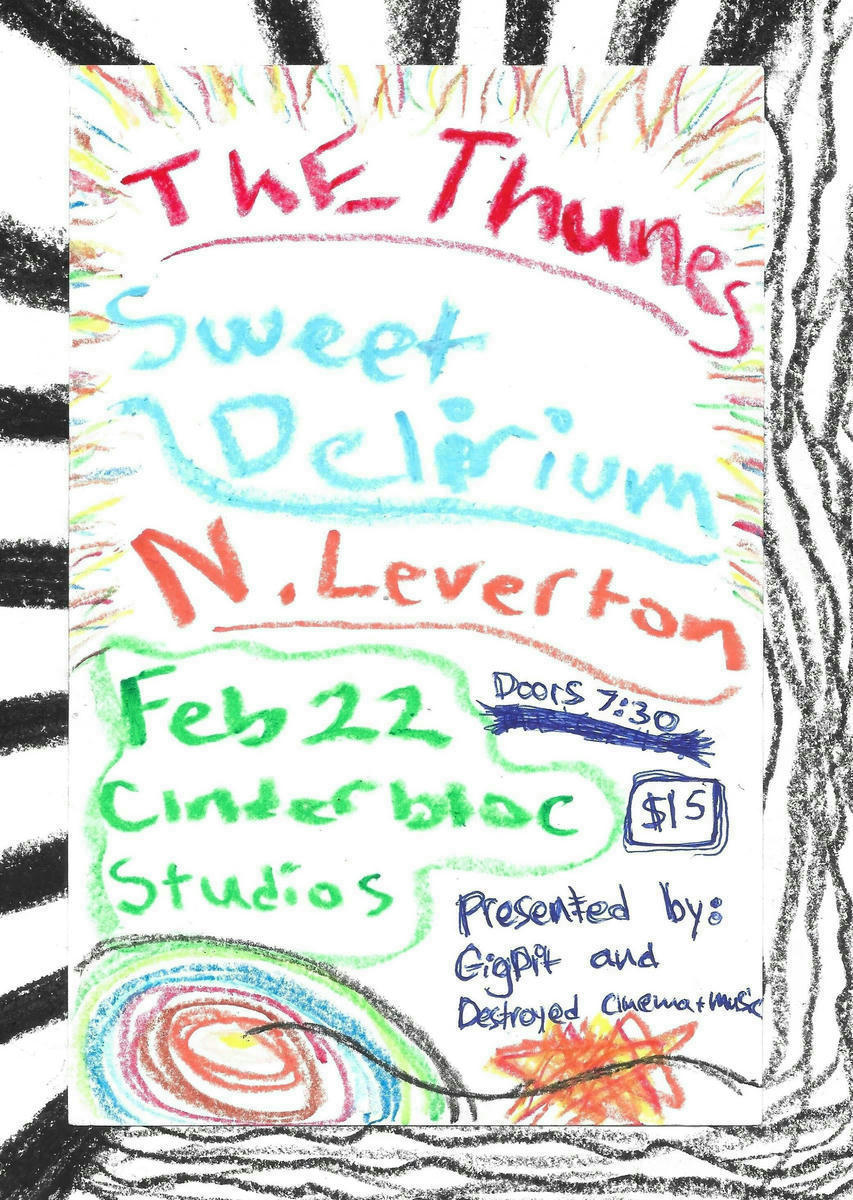 ThE Thunes
Sweet
Delirium
N. Leverton
Feb 22
Cinderbloc
Studios
Doors 7:30
$15
Presented by:
GigPit and
Destroyed cinema + music